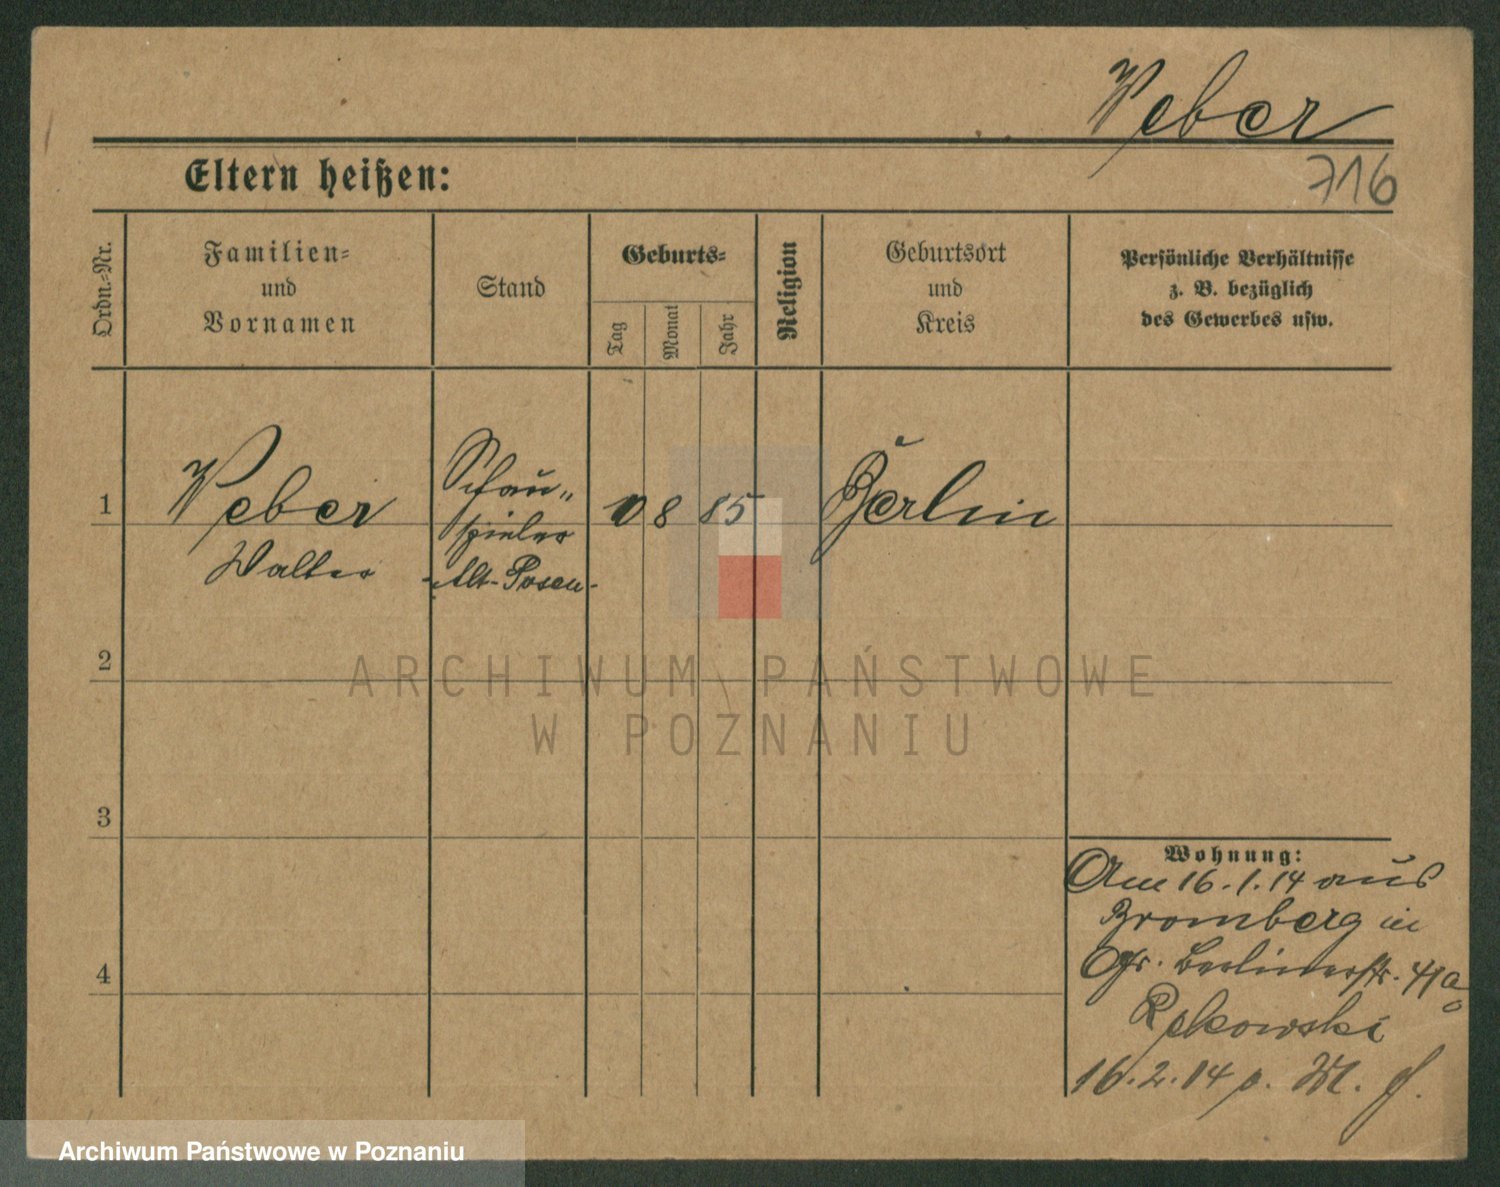 Weber
Eltern heißen:
716
Ordn.-Nr.
Familien-
und
Vornamen
Stand
Geburts-
Tag
Monat
Jahr
Religion
Geburtsort
und
Kreis
Persönliche Verhältnisse
z. B. bezüglich
des Gewerbes usw.
1
Weber
Walter
Schau-
spieler
Alt-Posen-
8 85
Berlin
2
ARCHIWUM PAŃSTWOWE
W POZNANIU
3
4
Wohnung:
Am 16.1.14 aus
Bromberg in
Gr. Berlinerstr. 41a
Rekowski
16.2.14
Archiwum Państwowe w Poznaniu